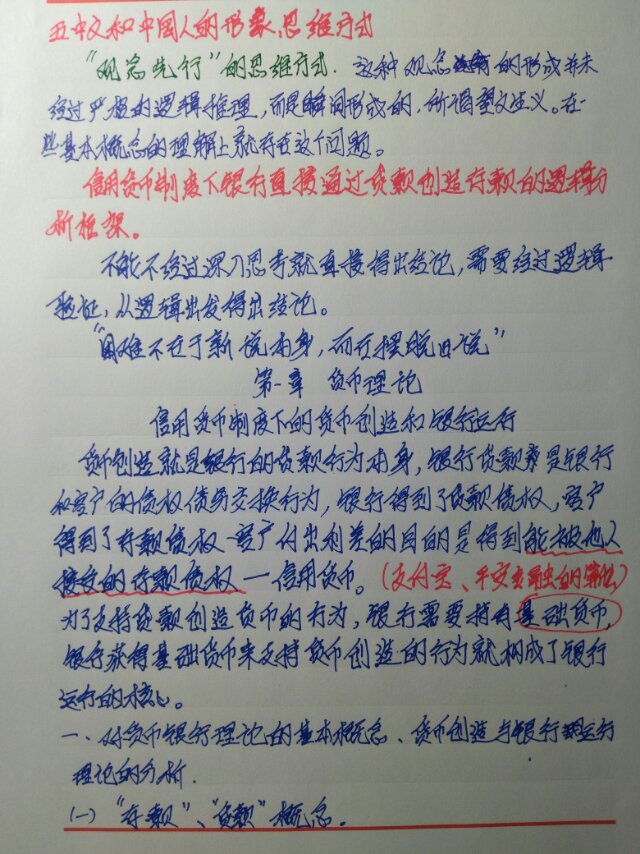 五中文和中国人的形象思维方式
“观念先行”的思维方式. 这种观念的形成并未
经过严格的逻辑推理,而是瞬间形成的,所谓望文生义。在一
些基本概念的理解上就存在这个问题。
信用货币制度下银行直接通过贷款创造存款的逻辑分
析框架。
不能不经过深入思考就直接得出结论,需要经过逻辑
验证,从逻辑出发得出结论。
“困难不在于新说本身,而在摆脱旧说”
第一章 货币理论
信用货币制度下的货币创造和银行运行
货币创造就是银行的贷款行为本身,银行贷款是银行
和客户的债权债务交换行为,银行得到了贷款债权,客户
得到了存款债权 客户付出利差的目的是得到能被他人
接受的存款债权—信用货币。(支付宝、平安金融的)
为了支持贷款创造货币的行为,银行需要持有基础货币,
银行获得基础货币来支持货币创造的行为就构成了银行
运行的核心。
一、对货币银行理论的基本概念、货币创造与银行运行
理论的分析.
(一)“存款”、“贷款”概念。